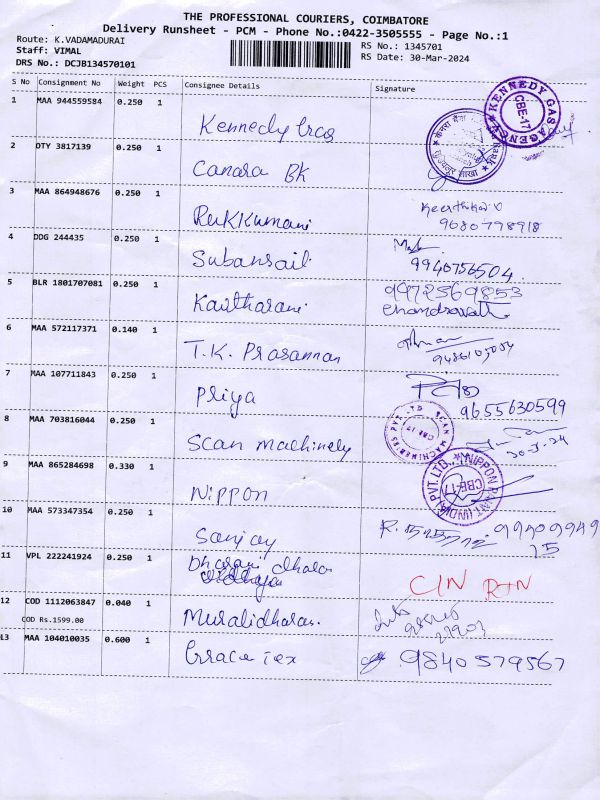 THE PROFESSIONAL COURIERS, COIMBATORE
Delivery Runsheet - PCM - Phone No.:0422-3505555 - Page No.:1
Route: K.VADAMADURAI
Staff: VIMAL
DRS No.: DCJB134570101
RS No.: 1345701
RS Date: 30-Mar-2024
S No Consignment No Weight PCS Consignee Details Signature
1 MAA 944559584 0.250 1 Kennedy
KENNEDY GAS AGENCY CBE-17
2 DTY 3817139 0.250 1 Canara BK
3 MAA 864948676 0.250 1 Rukkumani
9680798918
4 DDG 244435 0.250 1 Subansail
9940756504
5 BLR 1801707081 0.250 1 Kavitharani
9972569853
6 MAA 572117371 0.140 1 T.K. Prasannan
7 MAA 107711843 0.250 1 Priya
9655630599
8 MAA 703816044 0.250 1 Scan Machinely
SCAN MACHINERIES PVT. LTD CBE-17
30-3-24
9 MAA 865284698 0.330 1 Nippon
NIPPON PAINT (INDIA) PVT. LTD. CBE-17
10 MAA 573347354 0.250 1 Sanjay
R.
99409949
15
11 VPL 222241924 0.250 1 Dharani dharan
CIN RTN
12 COD 1112063847 0.040 1 Muralidharan.
COD Rs.1599.00
13 MAA 104010035 0.600 1 Grace Tex
9840579567